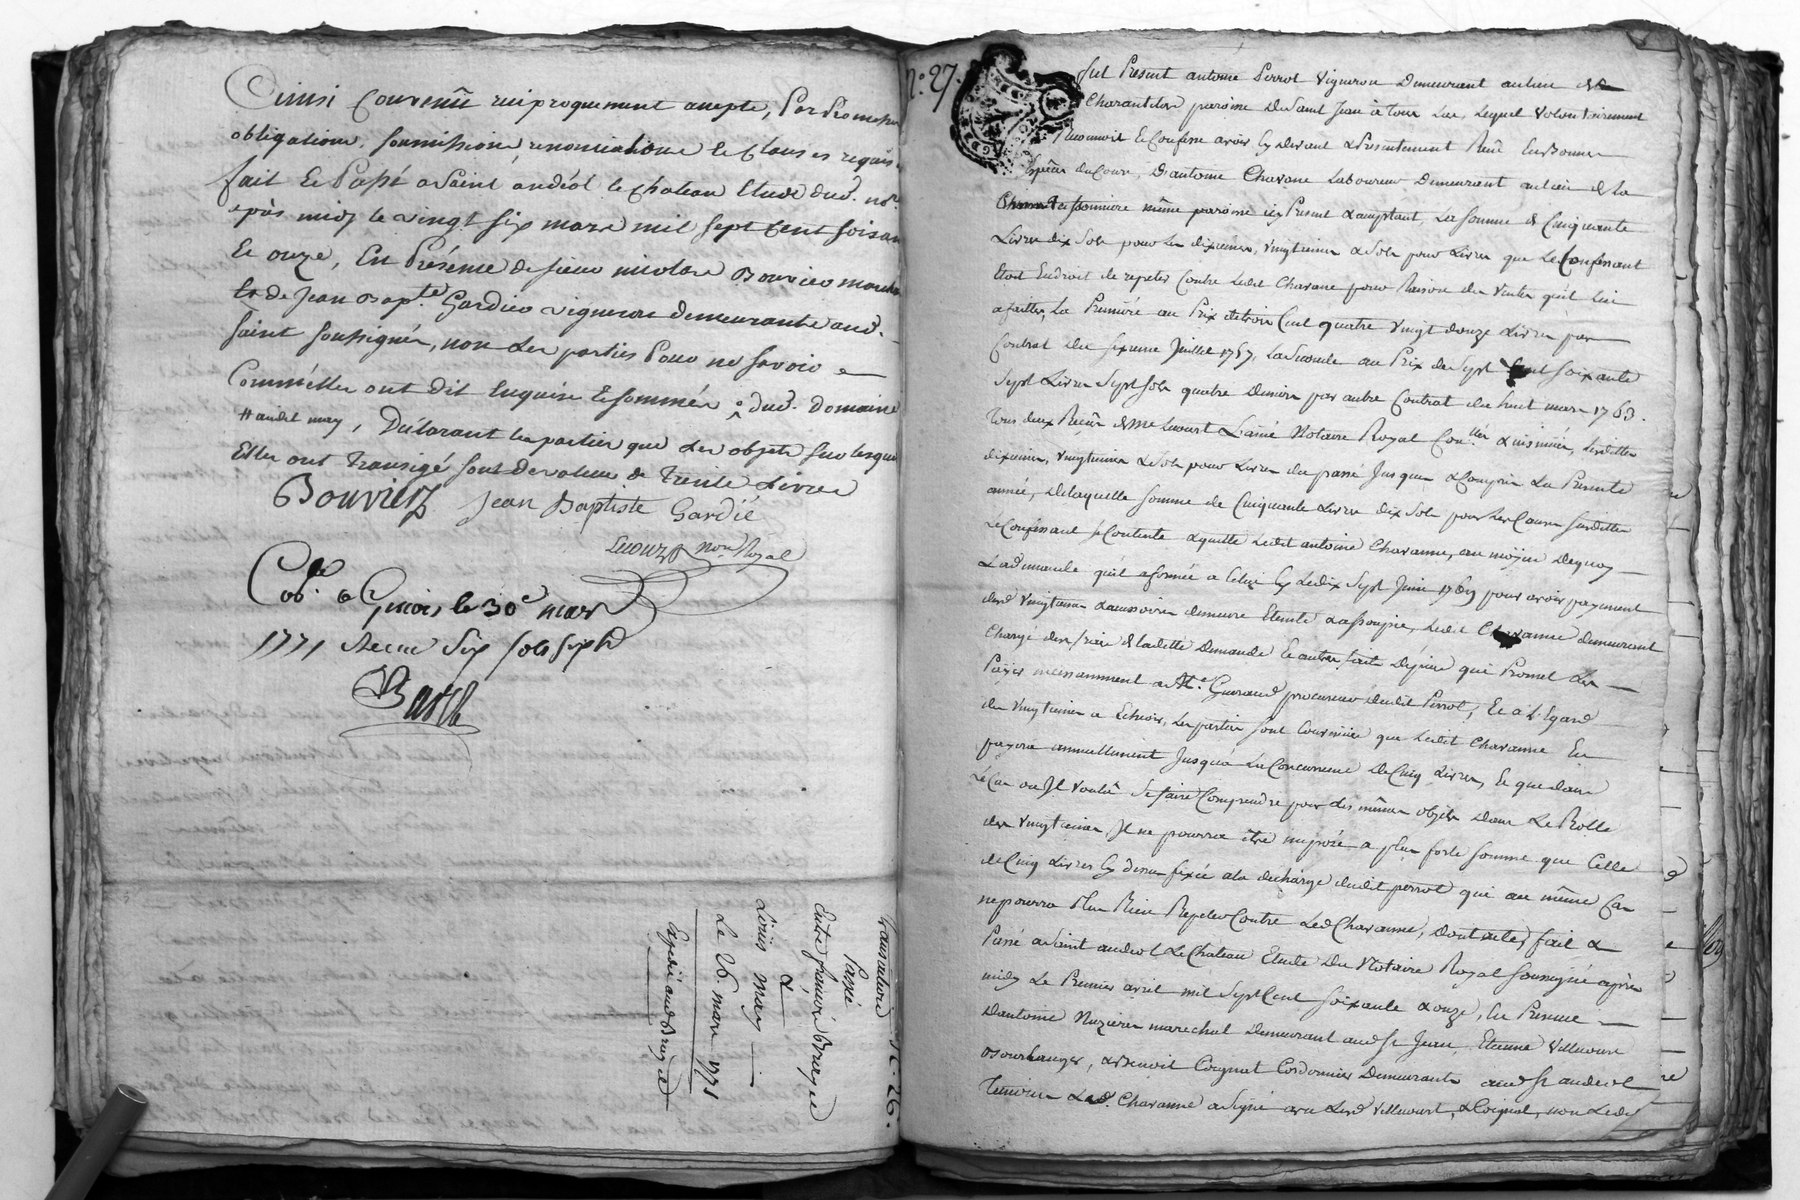 Ainsi Convenû reciproquement accepté, Par Promesses
obligations, soumissions, renonciations & Clauses requis
fait & Passé a Saint andéol le chateau Etude dud. no.re
après midy le vingt six mars mil sept cent soixan
& onze, En Présence de sieur nicolas Bouvier march
& de Jean Bapte Gardier vigneron demeurants aud.
Saint soussignés, non les parties Pour ne savoir
Comm'elles ont dit Enquises & sommées dud. Domaine
# audit may, Déclarant les parties que les objets sur lesque
Elles ont transigé sont de valeur de trente Livres
Bouvier Jean Baptiste Gardié
Lecourt no.re Royal
Cob.lé a Givors le 30e mars
1771 Recu Six sols six d
Basth
transaction N.o 26.
Passée
Entre françois Brayze
&
Louis may
Le 26 mars 1771
Expedié aud Brayze
N.o 27.
fut Présent antoine Perrot vigneron demeurant au lieu de
Charantilon paroisse de Saint Jean à tour Las, Lequel volontairement
reconnoit & Confesse avoir cy devant & Présentement Reçû En Bonnes
Espèces du Cours, D'antoine Chavane Laboureur demeurant au lieu de la
même paroisse icy Présent & acceptant, La somme de Cinquante
Livres dix Sols pour les dixiemes, vingtiemes & Sols pour Livres que Le Confessant
Etoit En droit de repeter Contre Ledit Chavane pour Raison des ventes qu'il lui
a faittes, La Premiére au Prix de trois Cent quatre vingt douze Livres par
Contrat du sixieme Juillet 1757, La Seconde au Prix de Sept Cent soixante
Sept Livres Sept Sols quatre deniers par autre Contrat du huit mars 1763.
tous deux Recûs de Me Lecourt L'ainé Notaire Royal Con.llés & insinués, Lesdittes
dixiemes, vingtiemes & Sols pour Livres du passé Jusques & Compris La Presente
année, De laquelle somme de Cinquante Livres dix Sols pour Les Causes susdittes
Le Confessant se Contente & quitte Ledit antoine Chavanne, au moyen de quoy
La demande qu'il a formée a Celui cy Le dix Sept Juin 1769 pour avoir payement
desd vingtiemes & accessoires demeure Eteinte & assoupie, Ledit Chavanne demeurant
Chargé des frais de laditte Demande & autres faits Depuis qui Promet Les
Païer incessamment a Me. Guerand procureur dudit Perrot, & a L'Egard
des vingtiemes a Echeoir, Les parties sont Convenües que Ledit Chavanne En
payera annuellement Jusqu'a La Concurrence De Cinq Livres, & que dans
Le Cas ou Il voulut se faire Comprendre pour Les mêmes objets dans Le Rolle
des vingtiemes, Il ne pourra être imposé a plus forte somme que Celle
de Cinq Livres Cy dessus fixée a la décharge dudit perrot qui au même Cas
ne pourra Plus Rien Repeter Contre Led Chavanne, Dont acte, fait &
Passé a Saint andeol Le Chateau Etude Du Notaire Royal Soussigné après
midy Le Premier avril mil Sept Cent soixante & onze, En Presence
D'antoine Nuzieres marechal Demeurant aud St Jean, Etienne Villecourt
Boulanger, & Benoit Coignet Cordonnier Demeurants aud St andeol
temoins Led. Chavanne a Signé avec Lesd Villecourt, & Coignet, non Ledt